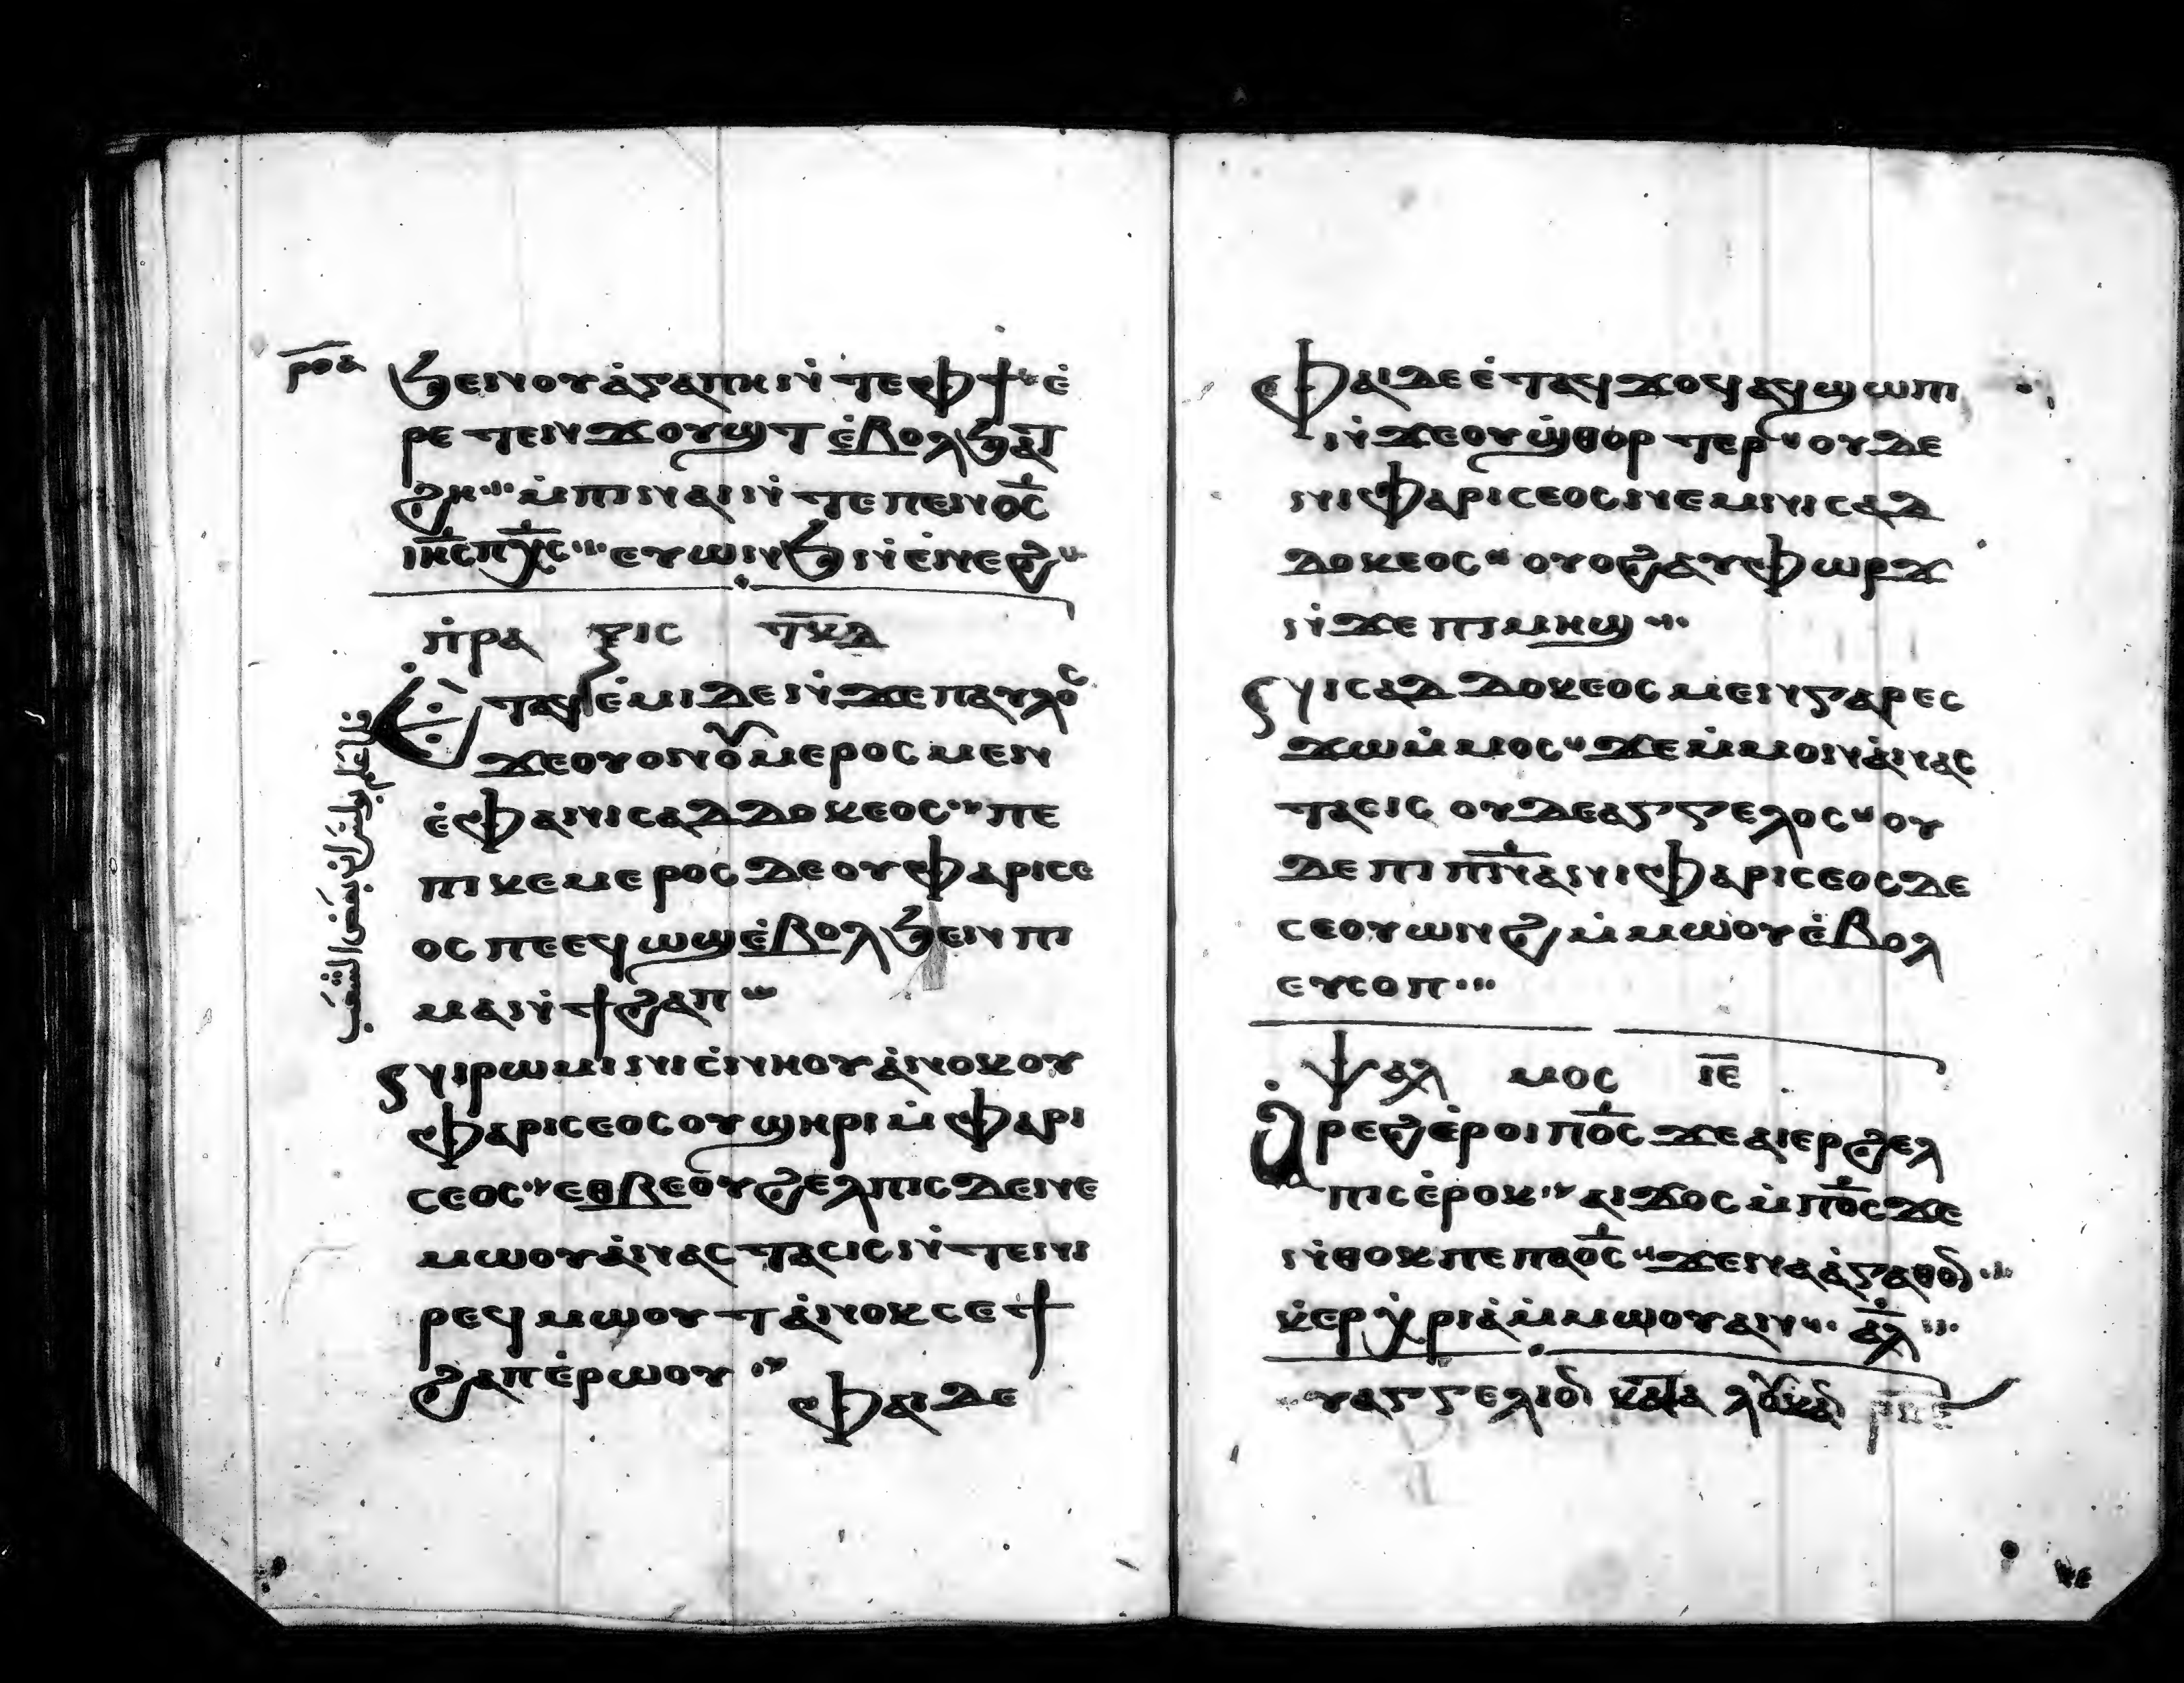 ⲣⲟⲁ
ϧⲉⲛⲟⲩⲁ̀ⲅⲁⲡⲏⲛ̀ⲧⲉⲫϯ ⲉ̀
ⲣⲉⲧⲉⲛϫⲟⲩϣⲧ ⲉ̀ⲃⲟⲗϧⲁⲧ
ϩⲏ ⲙ̀ⲡⲓⲛⲁⲓⲛ̀ⲧⲉⲡⲉⲛⲟ̅ⲥ̅
ⲓⲏ̅ⲥ̅ⲡⲭ̅ⲥ̅ ⲉⲩⲱⲛϧⲛ̀ⲉ̀ⲛⲉϩ
ⲡ̀ⲣⲁⲝⲓⲥ ⲧ̅ⲕ̅ⲇ̅
ⲉ̀ⲧⲁϥⲉ̀ⲙⲓⲇⲉⲛ̀ϫⲉⲡⲁⲩⲗⲟⲥ
ϫⲉⲟⲩⲟⲛⲟⲩⲙⲉⲣⲟⲥⲙⲉⲛ
ⲉ̀ⲫⲁⲛⲓⲥⲁⲇⲇⲟⲕⲉⲟⲥ ⲡⲉ
ⲡⲓⲕⲉⲙⲉⲣⲟⲥⲇⲉⲟⲩⲫⲁⲣⲓⲥⲉ
ⲟⲥⲡⲉⲉϥⲱϣⲉ̀ⲃⲟⲗϧⲉⲛⲡⲓ
ⲙⲁⲛ̀ϯϩⲁⲡ
ⲛⲓⲣⲱⲙⲓⲛⲓⲥ̀ⲛⲏⲟⲩⲁ̀ⲛⲟⲕⲟⲩ
ⲫⲁⲣⲓⲥⲉⲟⲥⲟⲩϣⲏⲣⲓⲙ̀ⲫⲁⲣⲓ
ⲥⲉⲟⲥ ⲉⲑⲃⲉⲟⲩϩⲉⲗⲡⲓⲥⲇⲉⲛⲉ
ⲙⲱⲟⲩⲁ̀ⲛⲁⲥⲧⲁⲥⲓⲥⲛ̀ⲧⲉⲛⲓ
ⲣⲉϥⲙⲱⲟⲩⲧⲁ̀ⲛⲟⲕⲥⲉϯ
ϩⲁⲡⲉ̀ⲣⲱⲟⲩ
ⲫⲁⲓⲇⲉ
فلما علم بولس ان بعض الشعب
ⲫⲁⲓⲇⲉⲉ̀ⲧⲁϥϫⲟϥⲁϥϣⲱⲡⲓ
ⲛ̀ϫⲉⲟⲩϣ̀ⲑⲟⲣⲧⲉⲣ ⲟⲩⲇⲉ
ⲛⲓⲫⲁⲣⲓⲥⲉⲟⲥⲛⲉⲙⲛⲓⲥⲁⲇ
ⲇⲟⲕⲉⲟⲥ ⲟⲩⲟϩⲁⲩⲫⲱⲣϫ
ⲛ̀ϫⲉⲡⲓⲙⲏϣ
ⲛⲓⲥⲁⲇⲇⲟⲕⲉⲟⲥⲙⲉⲛⲅⲁⲣⲉⲥ
ϫⲱⲙ̀ⲙⲟⲥ ϫⲉⲙ̀ⲙⲟⲛⲁ̀ⲛⲁⲥ
ⲧⲁⲥⲓⲥ ⲟⲩⲇⲉⲁⲅⲅⲉⲗⲟⲥ ⲟⲩ
ⲇⲉⲡⲓⲡ̅ⲛ̅ⲁⲛⲓⲫⲁⲣⲓⲥⲉⲟⲥⲇⲉ
ⲥⲉⲟⲩⲱⲛϩⲙ̀ⲙⲱⲟⲩⲉ̀ⲃⲟⲗ
ⲉⲩⲥⲟⲡ
ⲯⲁⲗⲙⲟⲥ ⲓ̅ⲉ̅
ⲁ̀ⲣⲉϩⲉ̀ⲣⲟⲓⲡ̅ⲟ̅ⲥ̅ϫⲉⲁⲓⲉⲣϩⲉⲗ
ⲡⲓⲥⲉ̀ⲣⲟⲕ ⲁⲓϫⲟⲥⲙ̀ⲡ̅ⲟ̅ⲥ̅ϫⲉ
ⲛ̀ⲑⲟⲕⲡⲉⲡⲁⲟ̅ⲥ̅ ϫⲉⲛⲁⲁ̀ⲅⲁⲑⲟⲛ
ⲕ̀ⲉⲣⲭ̀ⲣⲓⲁ̀ⲙ̀ⲙⲱⲟⲩⲁⲛ ⲁ̅ⲗ̅
ⲩⲁⲅⲅⲉⲗⲓⲟⲛ ⲕⲁⲧⲁ ⲗⲟⲩⲕⲁⲛ